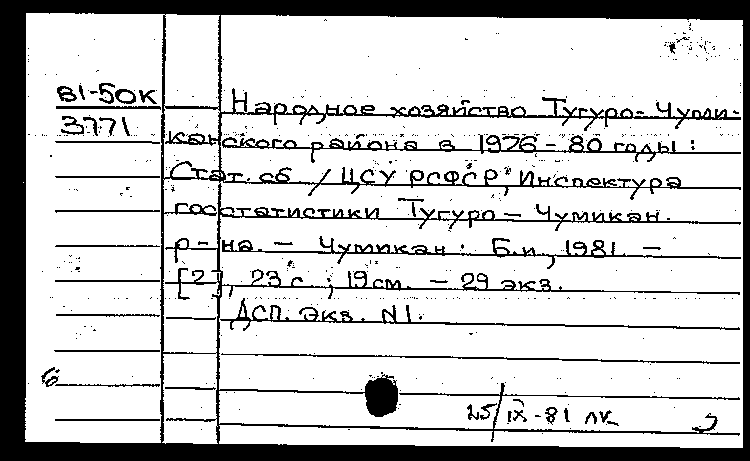 81-50К
3771
Народное хозяйство Тугуро-Чуми-
канского района в 1976-80 годы:
Стат. сб / ЦСУ РСФСР, Инспектура
госстатистики Тугуро-Чумикан.
р-на. - Чумикан: Б.и, 1981. -
[2], 23 с.; 19 см. - 29 экз.
ДСП. Экз. N1.
25/IX-81 лк